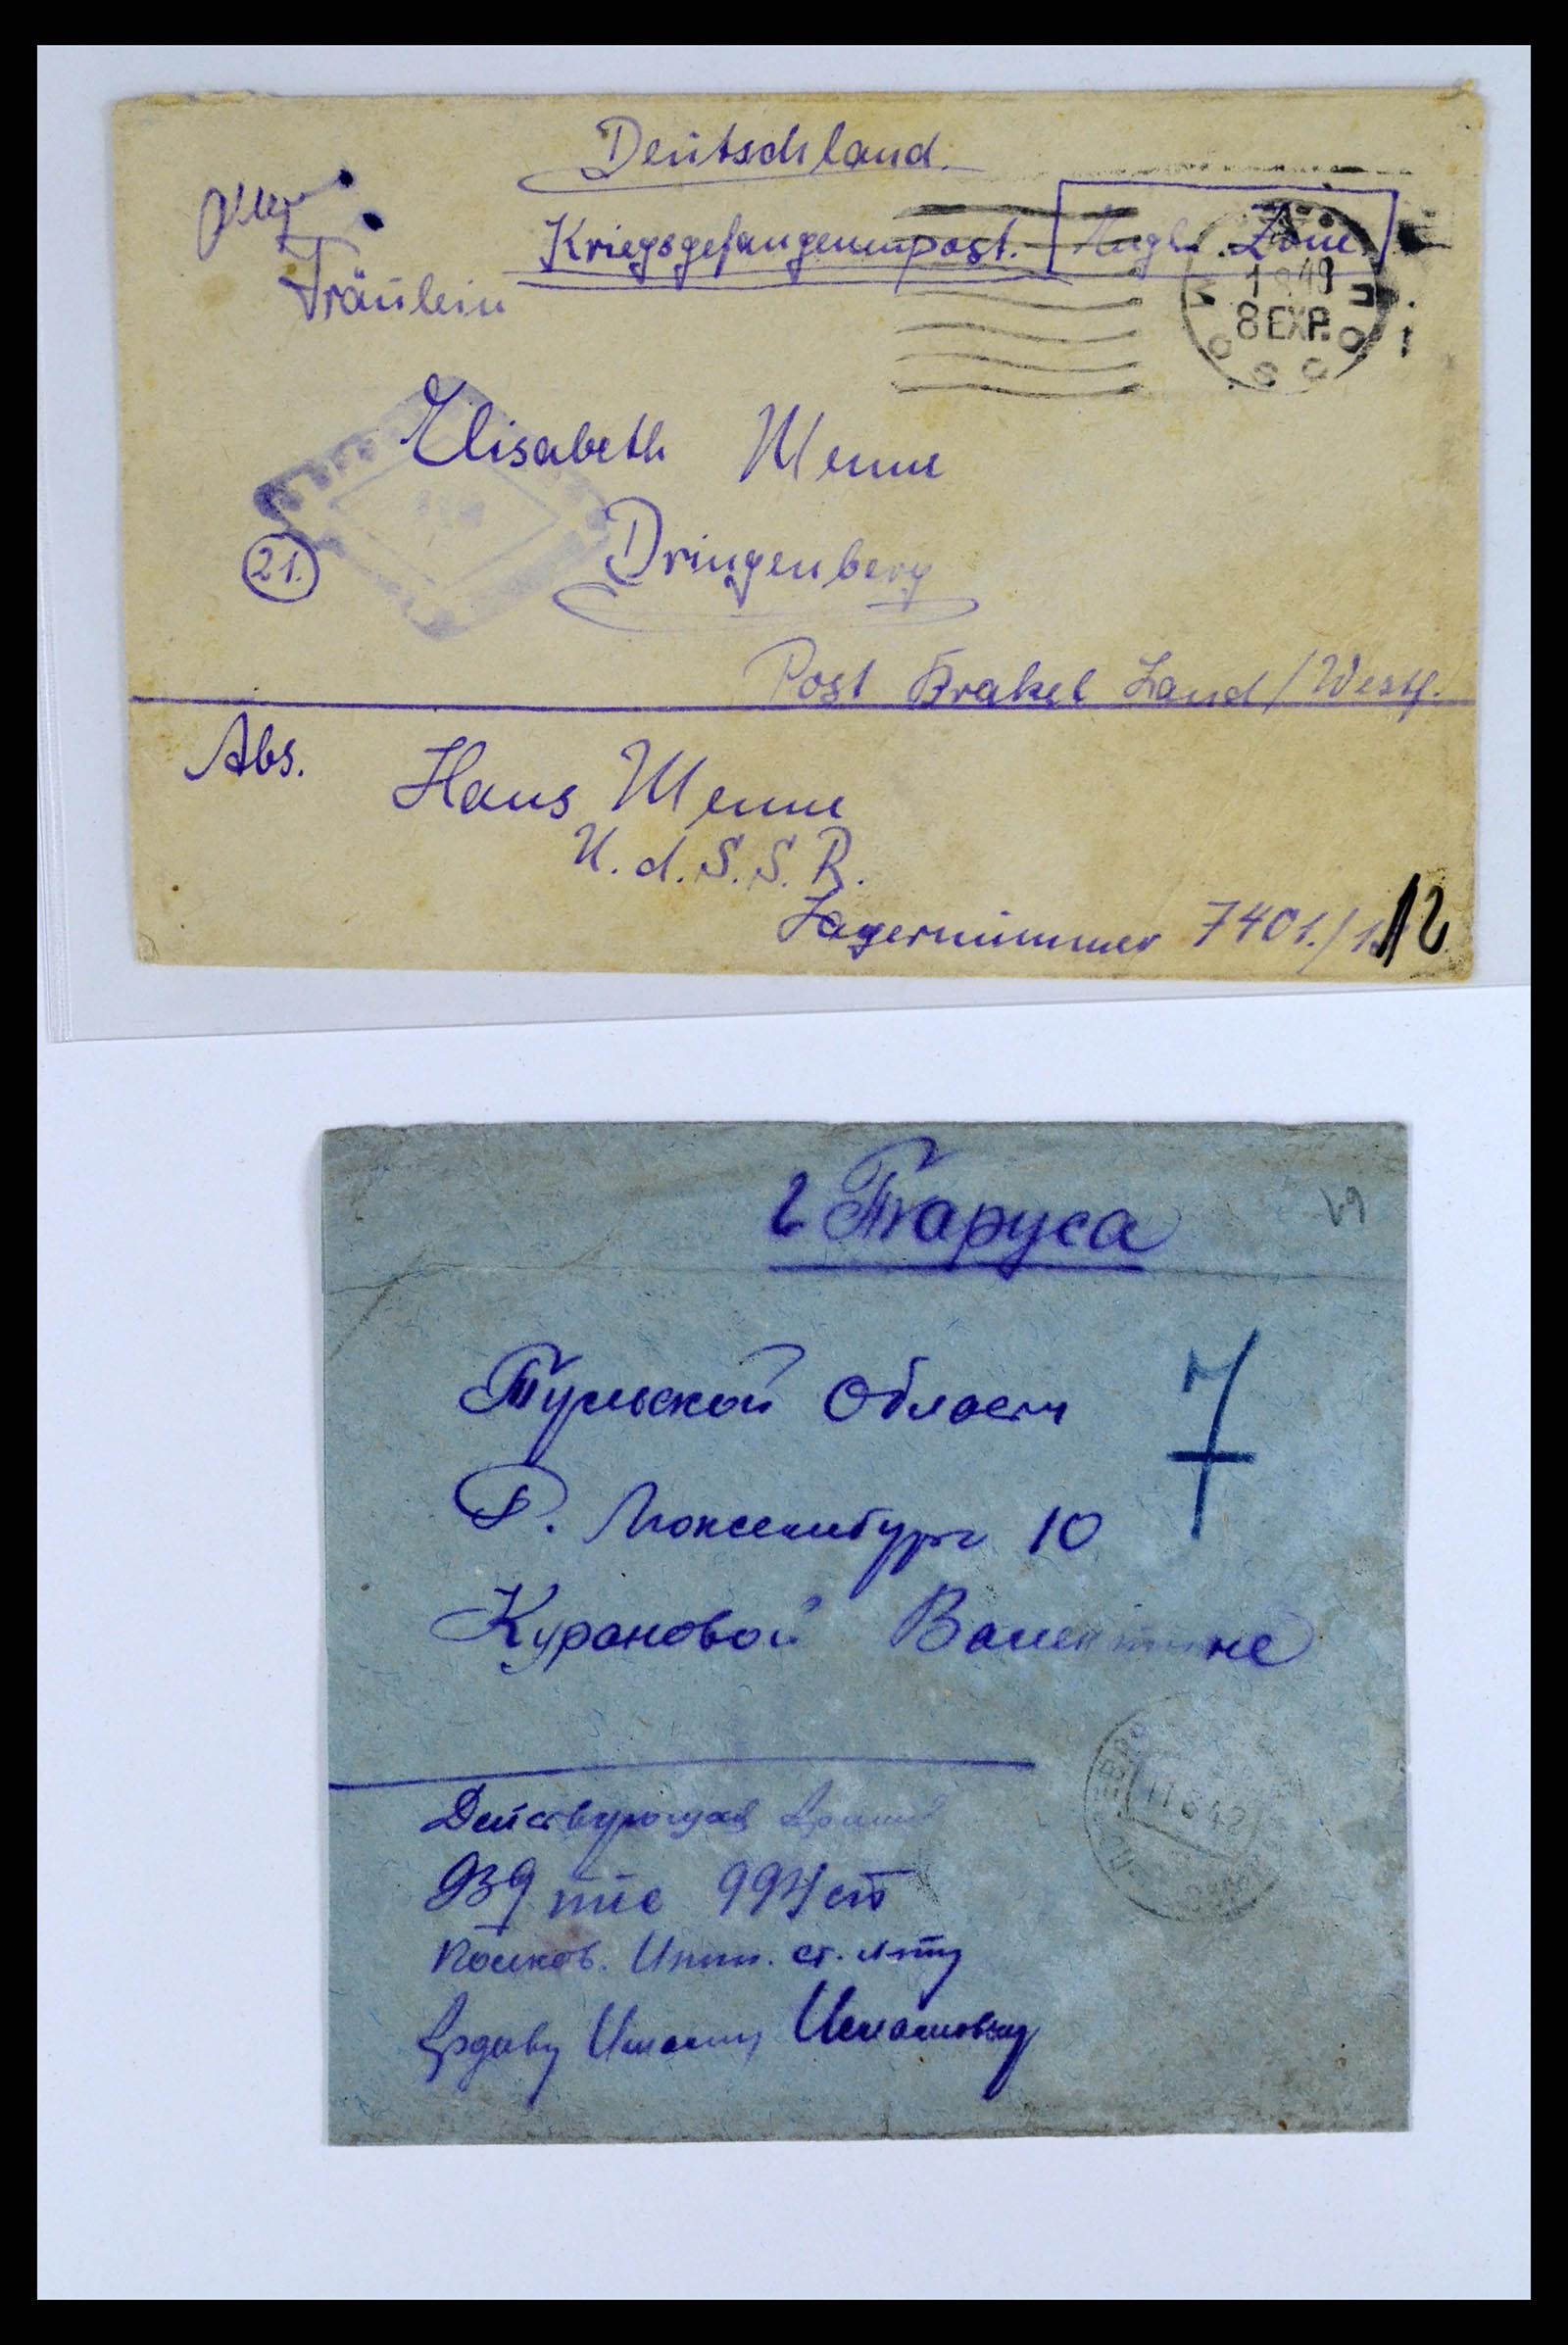 Deutschland.
Kriegsgefangenenpost. Engl. Zone
Fräulein
1 9 49
8 EXP.
MOSCOU
Elisabeth Menne
21.
Dringenberg
Post Brakel Land/Westf.
Abs. Hans Menne
U.d.S.S.R.
Lagernummer 7401./ 12
г Таруса
69
Тульской Области 7
Р. Люксембург 10
Курановой Валентине
Действующая Армия
939 ппс 994 сп
11 6 42
Полков. Инж. ст. л-ту